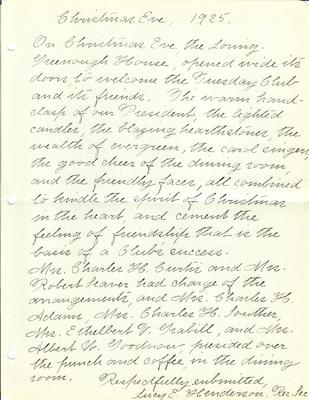 Christmas Eve, 1925.
On Christmas Eve the Loring-
Greenough House, opened wide its
doors to welcome the Tuesday Club
and its friends. The warm hand-
clasp of our President, the lighted
candles, the blazing hearthstones, the
wealth of evergreen, the carol singers,
the good cheer of the dining room,
and the friendly faces, all combined
to kindle the spirit of Christmas
in the heart, and cement the
feeling of friendship that is the
basis of a Club's success.
Mrs. Charles H. Curtis and Mrs.
Robert Seaver had charge of the
arrangements, and Mrs. Charles H.
Adams, Mrs. Charles H. Souther,
Mrs. Ethelbert V. Grabill, and Mrs.
Albert W. Goodnow presided over
the punch and coffee in the dining
room. Respectfully submitted,
Lucy E. Henderson, Rec. Sec.